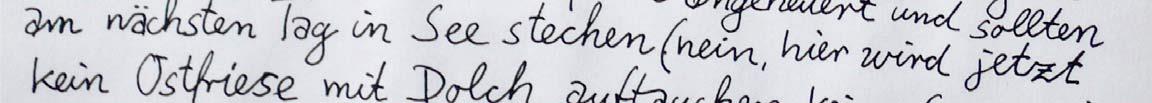 angeheuert und sollten
am nächsten Tag in See stechen (nein, hier wird jetzt
kein Ostfriese mit Dolch auftauchen